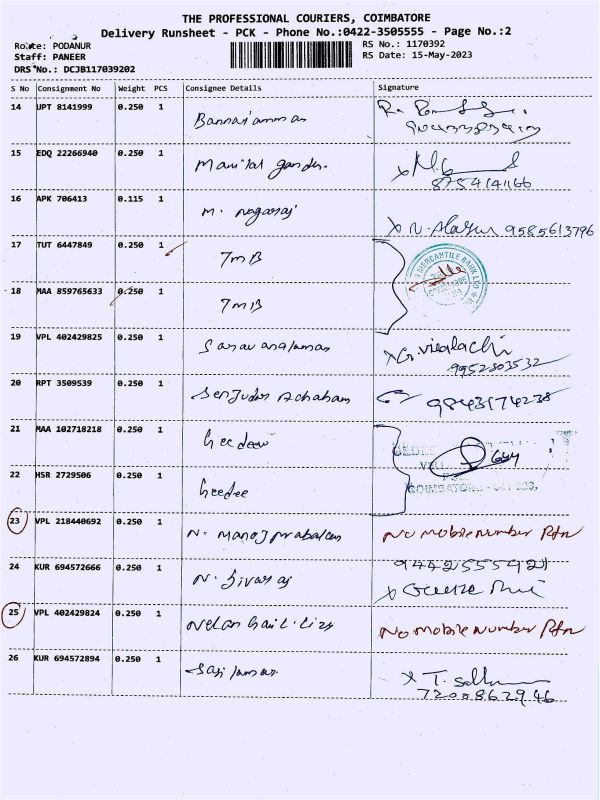 THE PROFESSIONAL COURIERS, COIMBATORE
Delivery Runsheet - PCK - Phone No.:0422-3505555 - Page No.:2
Route: PODANUR
RS No.: 1170392
Staff: PANEER
RS Date: 15-May-2023
DRS No.: DCJB117039202
S No Consignment No Weight PCS Consignee Details Signature
14 UPT 8141999 0.250 1 Bannariamman
15 EDQ 22266940 0.250 1
8754141166
16 APK 706413 0.115 1 M. Nagaraj
9585613796
17 TUT 6447849 0.250 1 TMB
MERCANTILE BANK LTD
18 MAA 859765633 0.250 1 TMB
19 VPL 402429825 0.250 1
9952803532
20 RPT 3509539 0.250 1
9843174238
21 MAA 102718218 0.250 1 Geedee
22 HSR 2729506 0.250 1 Geedee
COIMBATORE
23 VPL 218440692 0.250 1 N. Manoj prabakar No mobile number Rtn
24 KUR 694572666 0.250 1 N. Sivaraj
9442555421
25 VPL 402429824 0.250 1 No mobile number Rtn
26 KUR 694572894 0.250 1
7200862946